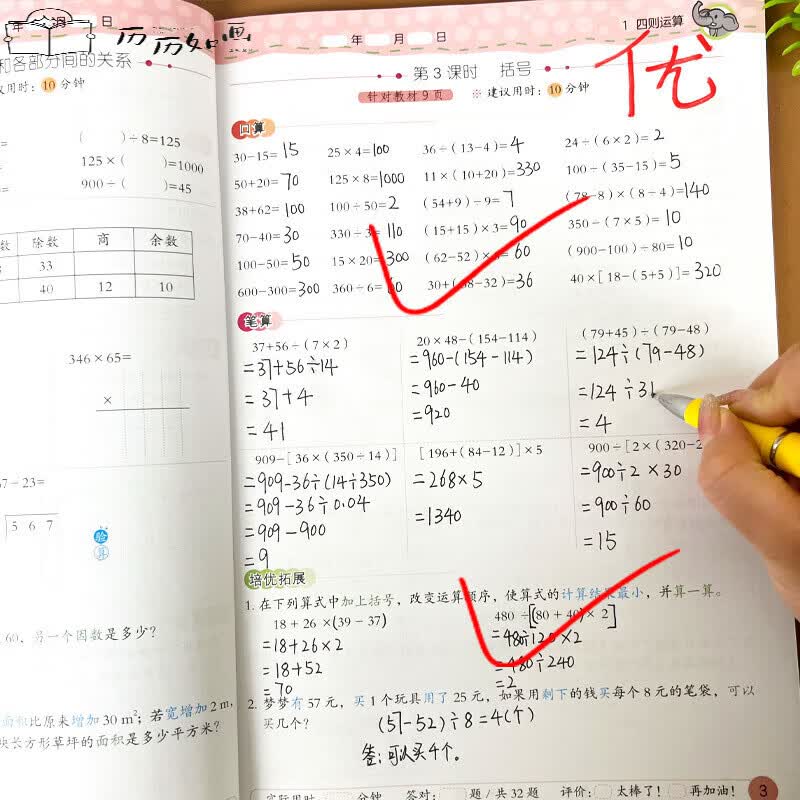 年 月 日
历历如画
和各部分间的关系
议用时：10分钟
( )÷8=125
125×( )=1000
900÷( )=45
数 除数 商 余数
33
40 12 10
346×65=
×
7−23=
5 6 7
验算
60，另一个因数是多少？
面积比原来增加30 m²；若宽增加2 m，
块长方形草坪的面积是多少平方米？
年 月 日
1 四则运算
优
第3课时 括号
针对教材9页 ※建议用时：10分钟
口算
30−15=15 25×4=100 36÷(13−4)=4 24÷(6×2)=2
50+20=70 125×8=1000 11×(10+20)=330 100÷(35−15)=5
38+62=100 100÷50=2 (54+9)÷9=7 (78−8)×(8−4)=140
70−40=30 330÷3=110 (15+15)×3=90 350÷(7×5)=10
100−50=50 15×20=300 (62−52)× =60 (900−100)÷80=10
600−300=300 360÷6=60 30+( 8−32)=36 40×[18−(5+5)]=320
笔算
37+56÷(7×2) 20×48−(154−114) (79+45)÷(79−48)
=37+56÷14 =960−(154−114) =124÷(79−48)
=37+4 =960−40 =124÷31
=41 =920 =4
909−[36×(350÷14)] [196+(84−12)]×5 900÷[2×(320−2
=909−36÷(14÷350) =268×5 =900÷2×30
=909−36÷0.04 =1340 =900÷60
=909−900 =15
=9
培优拓展
1. 在下列算式中加上括号，改变运算顺序，使算式的计算结果最小，并算一算。
18+26×(39−37) 480÷[(80+40)×2]
=18+26×2 =480÷120×2
=18+52 =480÷240
=70 =2
2. 梦梦有57元，买1个玩具用了25元，如果用剩下的钱买每个8元的笔袋，可以
买几个？ (57−52)÷8=4(个)
答：可以买4个。
实际用时 分钟 答对： 题/共32题 评价： 太棒了！ 再加油！ 3